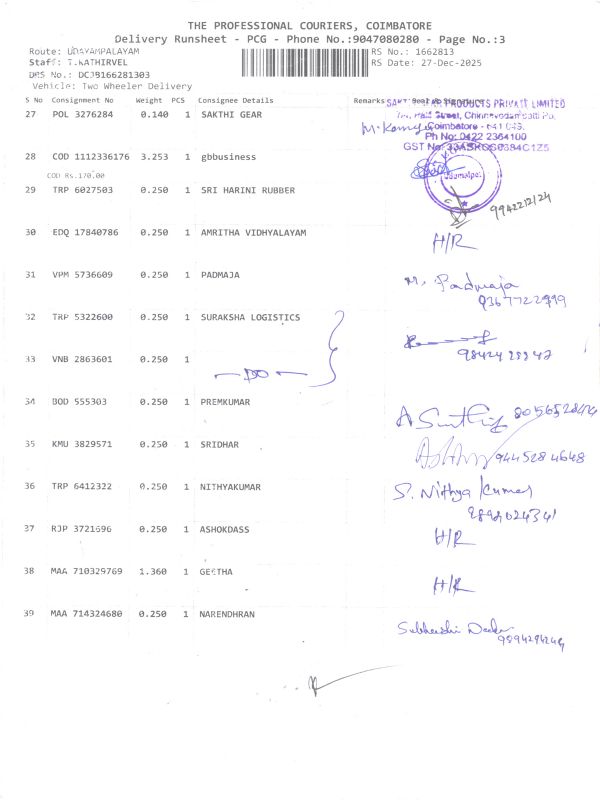 THE PROFESSIONAL COURIERS, COIMBATORE
Delivery Runsheet - PCG - Phone No.:9047080280 - Page No.:3
Route: UDAYAMPALAYAM
RS No.: 1662813
Staff: T.KATHIRVEL
RS Date: 27-Dec-2025
DRS No.: DCJB166281303
Vehicle: Two Wheeler Delivery
S No Consignment No Weight PCS Consignee Details Remarks
PRODUCTS PRIVATE LIMITED
27 POL 3276284 0.140 1 SAKTHI GEAR
Coimbatore - 641 049.
Ph No: 0422 2364100
GST No:
28 COD 1112336176 3.253 1 gbbusiness
COD Rs.170.00
29 TRP 6027503 0.250 1 SRI HARINI RUBBER
9942212124
30 EDQ 17840786 0.250 1 AMRITHA VIDHYALAYAM H/R
31 VPM 5736609 0.250 1 PADMAJA M. Padmaja
32 TRP 5322600 0.250 1 SURAKSHA LOGISTICS
33 VNB 2863601 0.250 1
— DO —
34 BOD 555303 0.250 1 PREMKUMAR
35 KMU 3829571 0.250 1 SRIDHAR
9445284648
36 TRP 6412322 0.250 1 NITHYAKUMAR S. Nithya Kumar
37 RJP 3721696 0.250 1 ASHOKDASS H/R
38 MAA 710329769 1.360 1 GEETHA H/R
39 MAA 714324680 0.250 1 NARENDHRAN